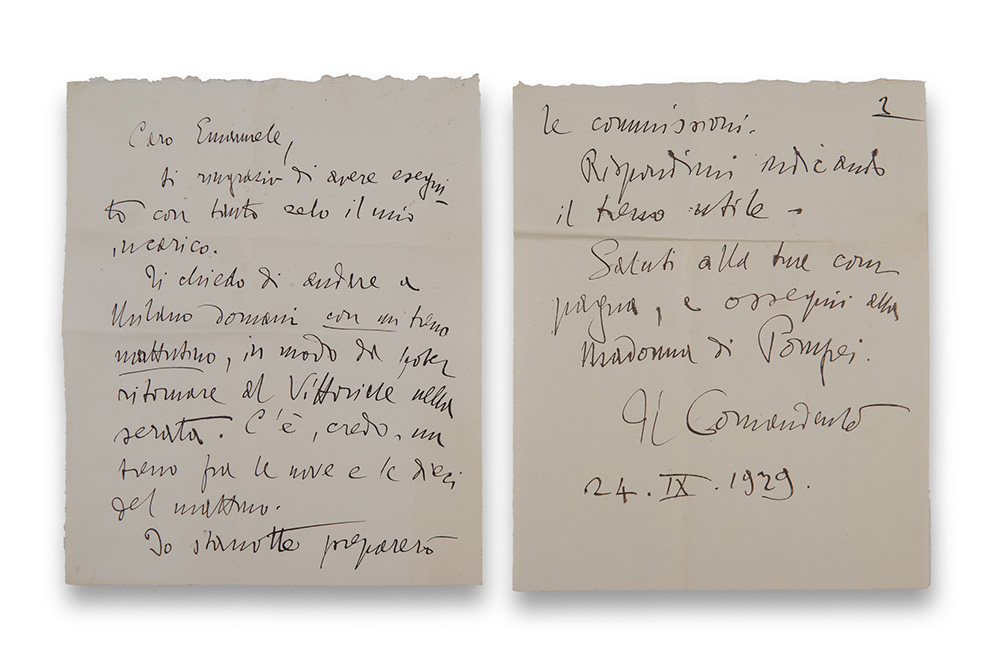 Caro Emanuele,
ti ringrazio di avere esegui-
to con tanto zelo il mio
incarico.
Ti chiedo di andare a
Milano domani con un treno
mattutino, in modo da poter
ritornare al Vittoriale nella
serata. C'è, credo, un
treno fra le nove e le dieci
del mattino.
Io stanotte preparerò
2
le commissioni.
Rispondimi indicando
il treno utile –
Saluti alla tua com
pagna, e ossequii alla
Madonna di Pompei.
Il Comandante
24.IX.1929.